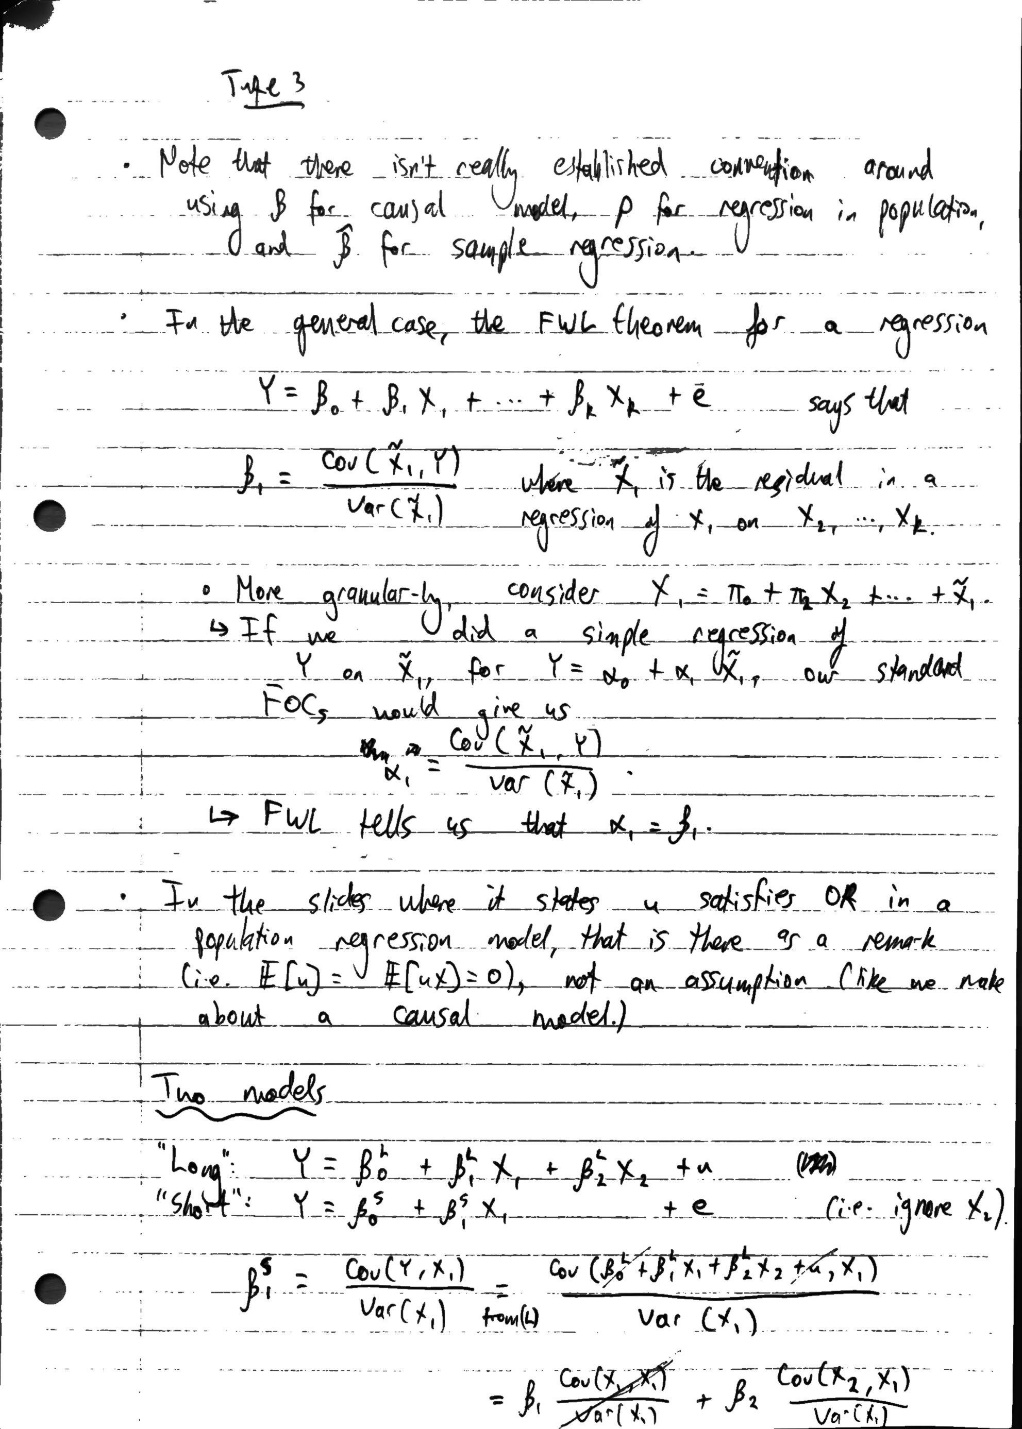 Tute 3
· Note that there isn't really established convention around
using β for causal model, ρ for regression in population,
and β̂ for sample regression.
· In the general case, the FWL theorem for a regression
Y = β₀ + β₁ X₁ + ... + βₖ Xₖ + e says that
β₁ = Cov(X̃₁, Y) / Var(X̃₁) where X̃₁ is the residual in a
regression of X₁ on X₂, ..., Xₖ.
∘ More granular-ly, consider X₁ = π₀ + π₂ X₂ + ... + X̃₁.
↳ If we did a simple regression of
Y on X̃₁, for Y = α₀ + α₁ X̃₁, our standard
FOCs would give us
α₁ = Cov(X̃₁, Y) / Var(X̃₁).
↳ FWL tells us that α₁ = β₁.
· In the slides where it states u satisfies OR in a
population regression model, that is there as a remark
(i.e. 𝔼[u] = 𝔼[uX] = 0), not an assumption (like we make
about a causal model.)
Two models
"Long": Y = β₀ᴸ + β₁ᴸ X₁ + β₂ᴸ X₂ + u
"Short": Y = β₀ˢ + β₁ˢ X₁ + e (i.e. ignore X₂).
β₁ˢ = Cov(Y, X₁) / Var(X₁) = from (L) Cov(β₀ᴸ + β₁ᴸ X₁ + β₂ᴸ X₂ + u, X₁) / Var(X₁)
= β₁ Cov(X₁, X₁) / Var(X₁) + β₂ Cov(X₂, X₁) / Var(X₁)